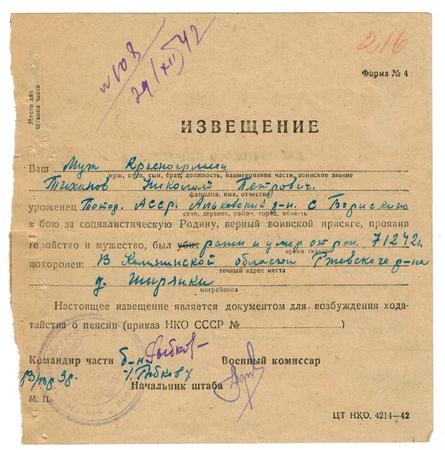 №108
29/XII 42
216
Форма № 4
Место для
штампа части
ИЗВЕЩЕНИЕ
Ваш Муж Красноармеец
муж, отец, сын, брат, должность, наименование части, воинское звание
Тиханов Николай Петрович.
фамилия, имя, отчество
уроженец Татар. АССР. Альковский р-н. с Борискино
село, деревня, рабоч. город, область
в бою за социалистическую Родину, верный воинской присяге, проявив
геройство и мужество, был убит ранен и умер от ран. 7.12.42 г.
похоронен: В Калининской области Ржевского р-на
точный адрес места
д.
погребения
Настоящее извещение является документом для возбуждения хода-
тайства о пенсии (приказ НКО СССР №
Командир части
Военный комиссар
/Рыбков/
Начальник штаба
М. П.
ЦТ НКО. 4214—42